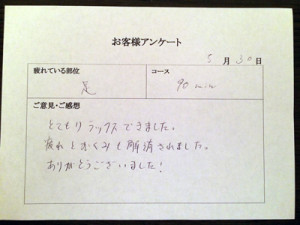 お客様アンケート
5月30日
疲れている部位
コース
足
90min
ご意見・ご感想
とてもリラックスできました。
疲れとむくみも解消されました。
ありがとうございました!